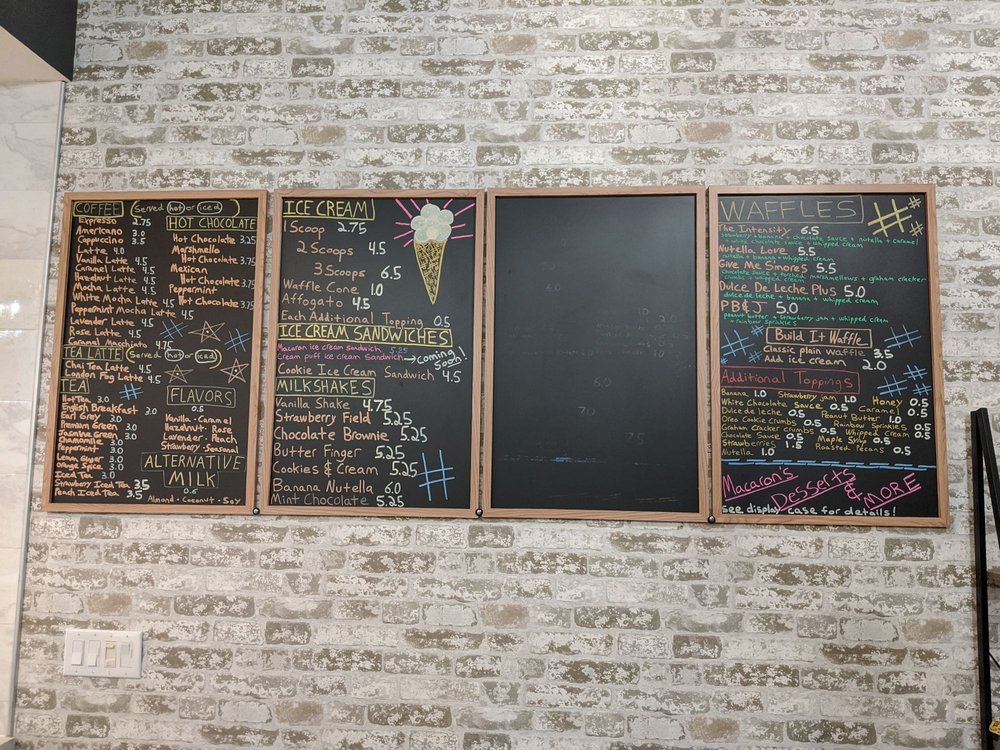 COFFEE (Served hot or iced)
Espresso 2.75
Americano 3.0
Cappuccino 3.5
Latte 4.0
Vanilla Latte 4.5
Caramel Latte 4.5
Hazelnut Latte 4.5
Mocha Latte 4.5
White Mocha Latte 4.5
Peppermint Mocha Latte 4.5
Lavender Latte 4.5
Rose Latte 4.5
Caramel Machiato 4.75
HOT CHOCOLATE
Hot Chocolate 3.25
Marshmello
Hot Chocolate 3.75
Mexican
Hot Chocolate 3.75
Peppermint
Hot Chocolate 3.75
TEA LATTE (Served hot or iced)
Chai Tea Latte 4.5
London Fog Latte 4.5
TEA
Hot Tea 3.0
English Breakfast 3.0
Earl Grey 3.0
Premium Green 3.0
Jasmine Green 3.0
Chamomile 3.0
Peppermint 3.0
Lemon Ginger 3.0
Orange Spice 3.0
Iced Tea 3.0
Strawberry Iced Tea 3.5
Peach Iced Tea 3.5
FLAVORS
0.5
Vanilla · Caramel
Hazelnut · Rose
Lavender · Peach
Strawberry · Seasonal
ALTERNATIVE
MILK
0.6
Almond · Coconut · Soy
ICE CREAM
1 Scoop 2.75
2 Scoops 4.5
3 Scoops 6.5
Waffle Cone 1.0
Affogato 4.5
Each Additional Topping 0.5
ICE CREAM SANDWICHES
Macaron ice cream sandwich 5.25
Cream puff ice cream Sandwich → Coming Soon!!
Cookie Ice Cream Sandwich 4.5
MILKSHAKES
Vanilla Shake 4.75
Strawberry Field 5.25
Chocolate Brownie 5.25
Butter Finger 5.25
Cookies & Cream 5.25
Banana Nutella 6.0
Mint Chocolate 5.25
6.0
7.0
7.5
WAFFLES
The Intensity 6.5
strawberry + banana + chocolate sauce + nutella + caramel
+ white chocolate sauce + whipped cream
Nutella Love 5.5
nutella + banana + whipped cream
Give Me Smores 5.5
Chocolate sauce + torched marshmellows + graham cracker
crumbs + whipped cream
Dulce De Leche Plus 5.0
dulce de leche + banana + whipped cream
PB&J 5.0
peanut butter + strawberry jam + whipped cream
+ rainbow sprinkles
Build It Waffle
Classic plain waffle 3.5
Add ice cream 2.0
Additional Toppings
Banana 1.0 Strawberry jam 1.0 Honey 0.5
White Chocolate Sauce 0.5 Caramel 0.5
Dulce de leche 0.5 Peanut Butter 1.0
Oreo Cookie Crumbs 0.5 Rainbow Sprinkles 0.5
Graham Cracker Crumbs 0.5 Whipped Cream 0.5
Chocolate Sauce 0.5 Maple Syrup 0.5
Strawberries 1.5 Roasted Pecans 0.5
Nutella 1.0
Macaron's
Desserts
& MORE
see display case for details!